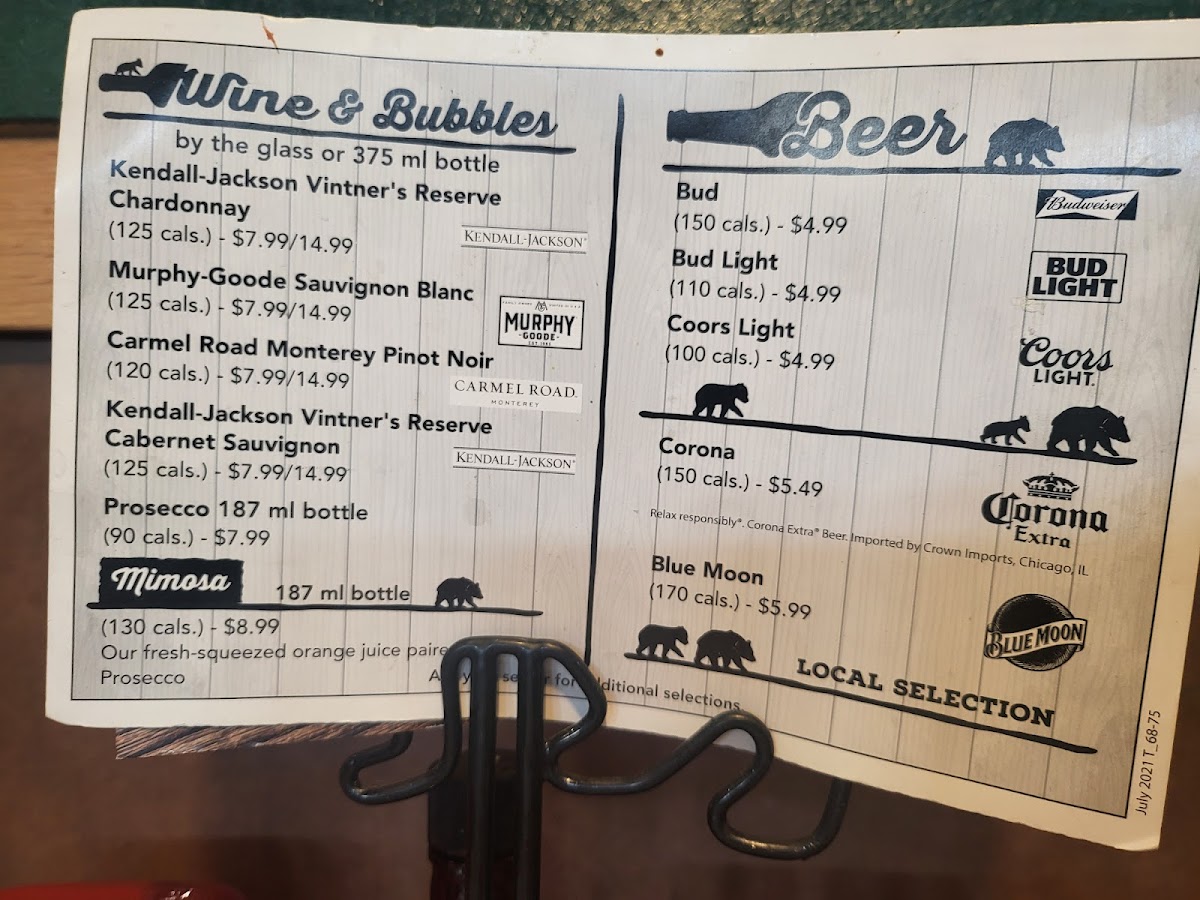 Wine & Bubbles
by the glass or 375 ml bottle
Kendall-Jackson Vintner's Reserve
Chardonnay
(125 cals.) - $7.99/14.99
KENDALL-JACKSON®
Murphy-Goode Sauvignon Blanc
(125 cals.) - $7.99/14.99
MURPHY
·GOODE·
Carmel Road Monterey Pinot Noir
(120 cals.) - $7.99/14.99
CARMEL ROAD.
MONTEREY
Kendall-Jackson Vintner's Reserve
Cabernet Sauvignon
(125 cals.) - $7.99/14.99
KENDALL-JACKSON®
Prosecco 187 ml bottle
(90 cals.) - $7.99
Mimosa
187 ml bottle
(130 cals.) - $8.99
Our fresh-squeezed orange juice paire
Prosecco
for additional selections.
Beer
Bud
(150 cals.) - $4.99
Budweiser
Bud Light
(110 cals.) - $4.99
BUD
LIGHT
Coors Light
(100 cals.) - $4.99
Coors
LIGHT.
Corona
(150 cals.) - $5.49
Corona
Extra
Relax responsibly®. Corona Extra® Beer. Imported by Crown Imports, Chicago, IL
Blue Moon
(170 cals.) - $5.99
BLUE MOON
LOCAL SELECTION
July 2021 T_68-75